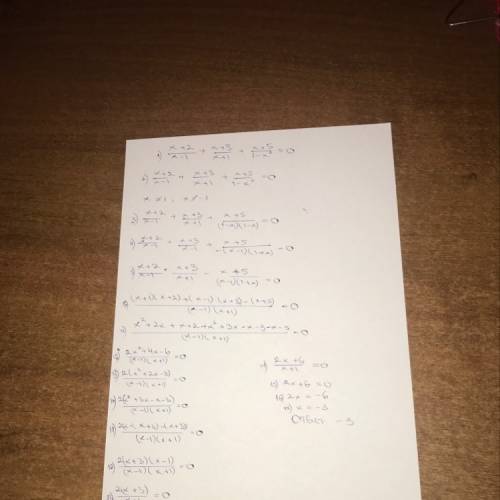 (x+2)/(x-1) + (x+3)/(x+1) + (x+5)/(1-x²) = 0
(x+2)/(x-1) + (x+3)/(x+1) + (x+5)/(1-x²) = 0
x≠1, x≠-1
(x+2)/(x-1) + (x+3)/(x+1) + (x+5)/((1-x)(1+x)) = 0
(x+2)/(x-1) + (x+3)/(x+1) + (x+5)/(-(x-1)(1+x)) = 0
(x+2)/(x-1) + (x+3)/(x+1) - (x+5)/((x-1)(1+x)) = 0
((x+1)(x+2)+(x-1)(x+3)-(x+5))/((x-1)(x+1)) = 0
(x²+2x+x+2+x²+3x-x-3-x-5)/((x-1)(x+1)) = 0
(2x²+4x-6)/((x-1)(x+1)) = 0
2(x²+2x-3)/((x-1)(x+1)) = 0
2(x²+3x-x-3)/((x-1)(x+1)) = 0
2(x(x+3)-(x+3))/((x-1)(x+1)) = 0
2(x+3)(x-1)/((x-1)(x+1)) = 0
2(x+3)
= 0
(2x+6)/(x+1) = 0
2x+6=0
2x=-6
x=-3
Ответ -3